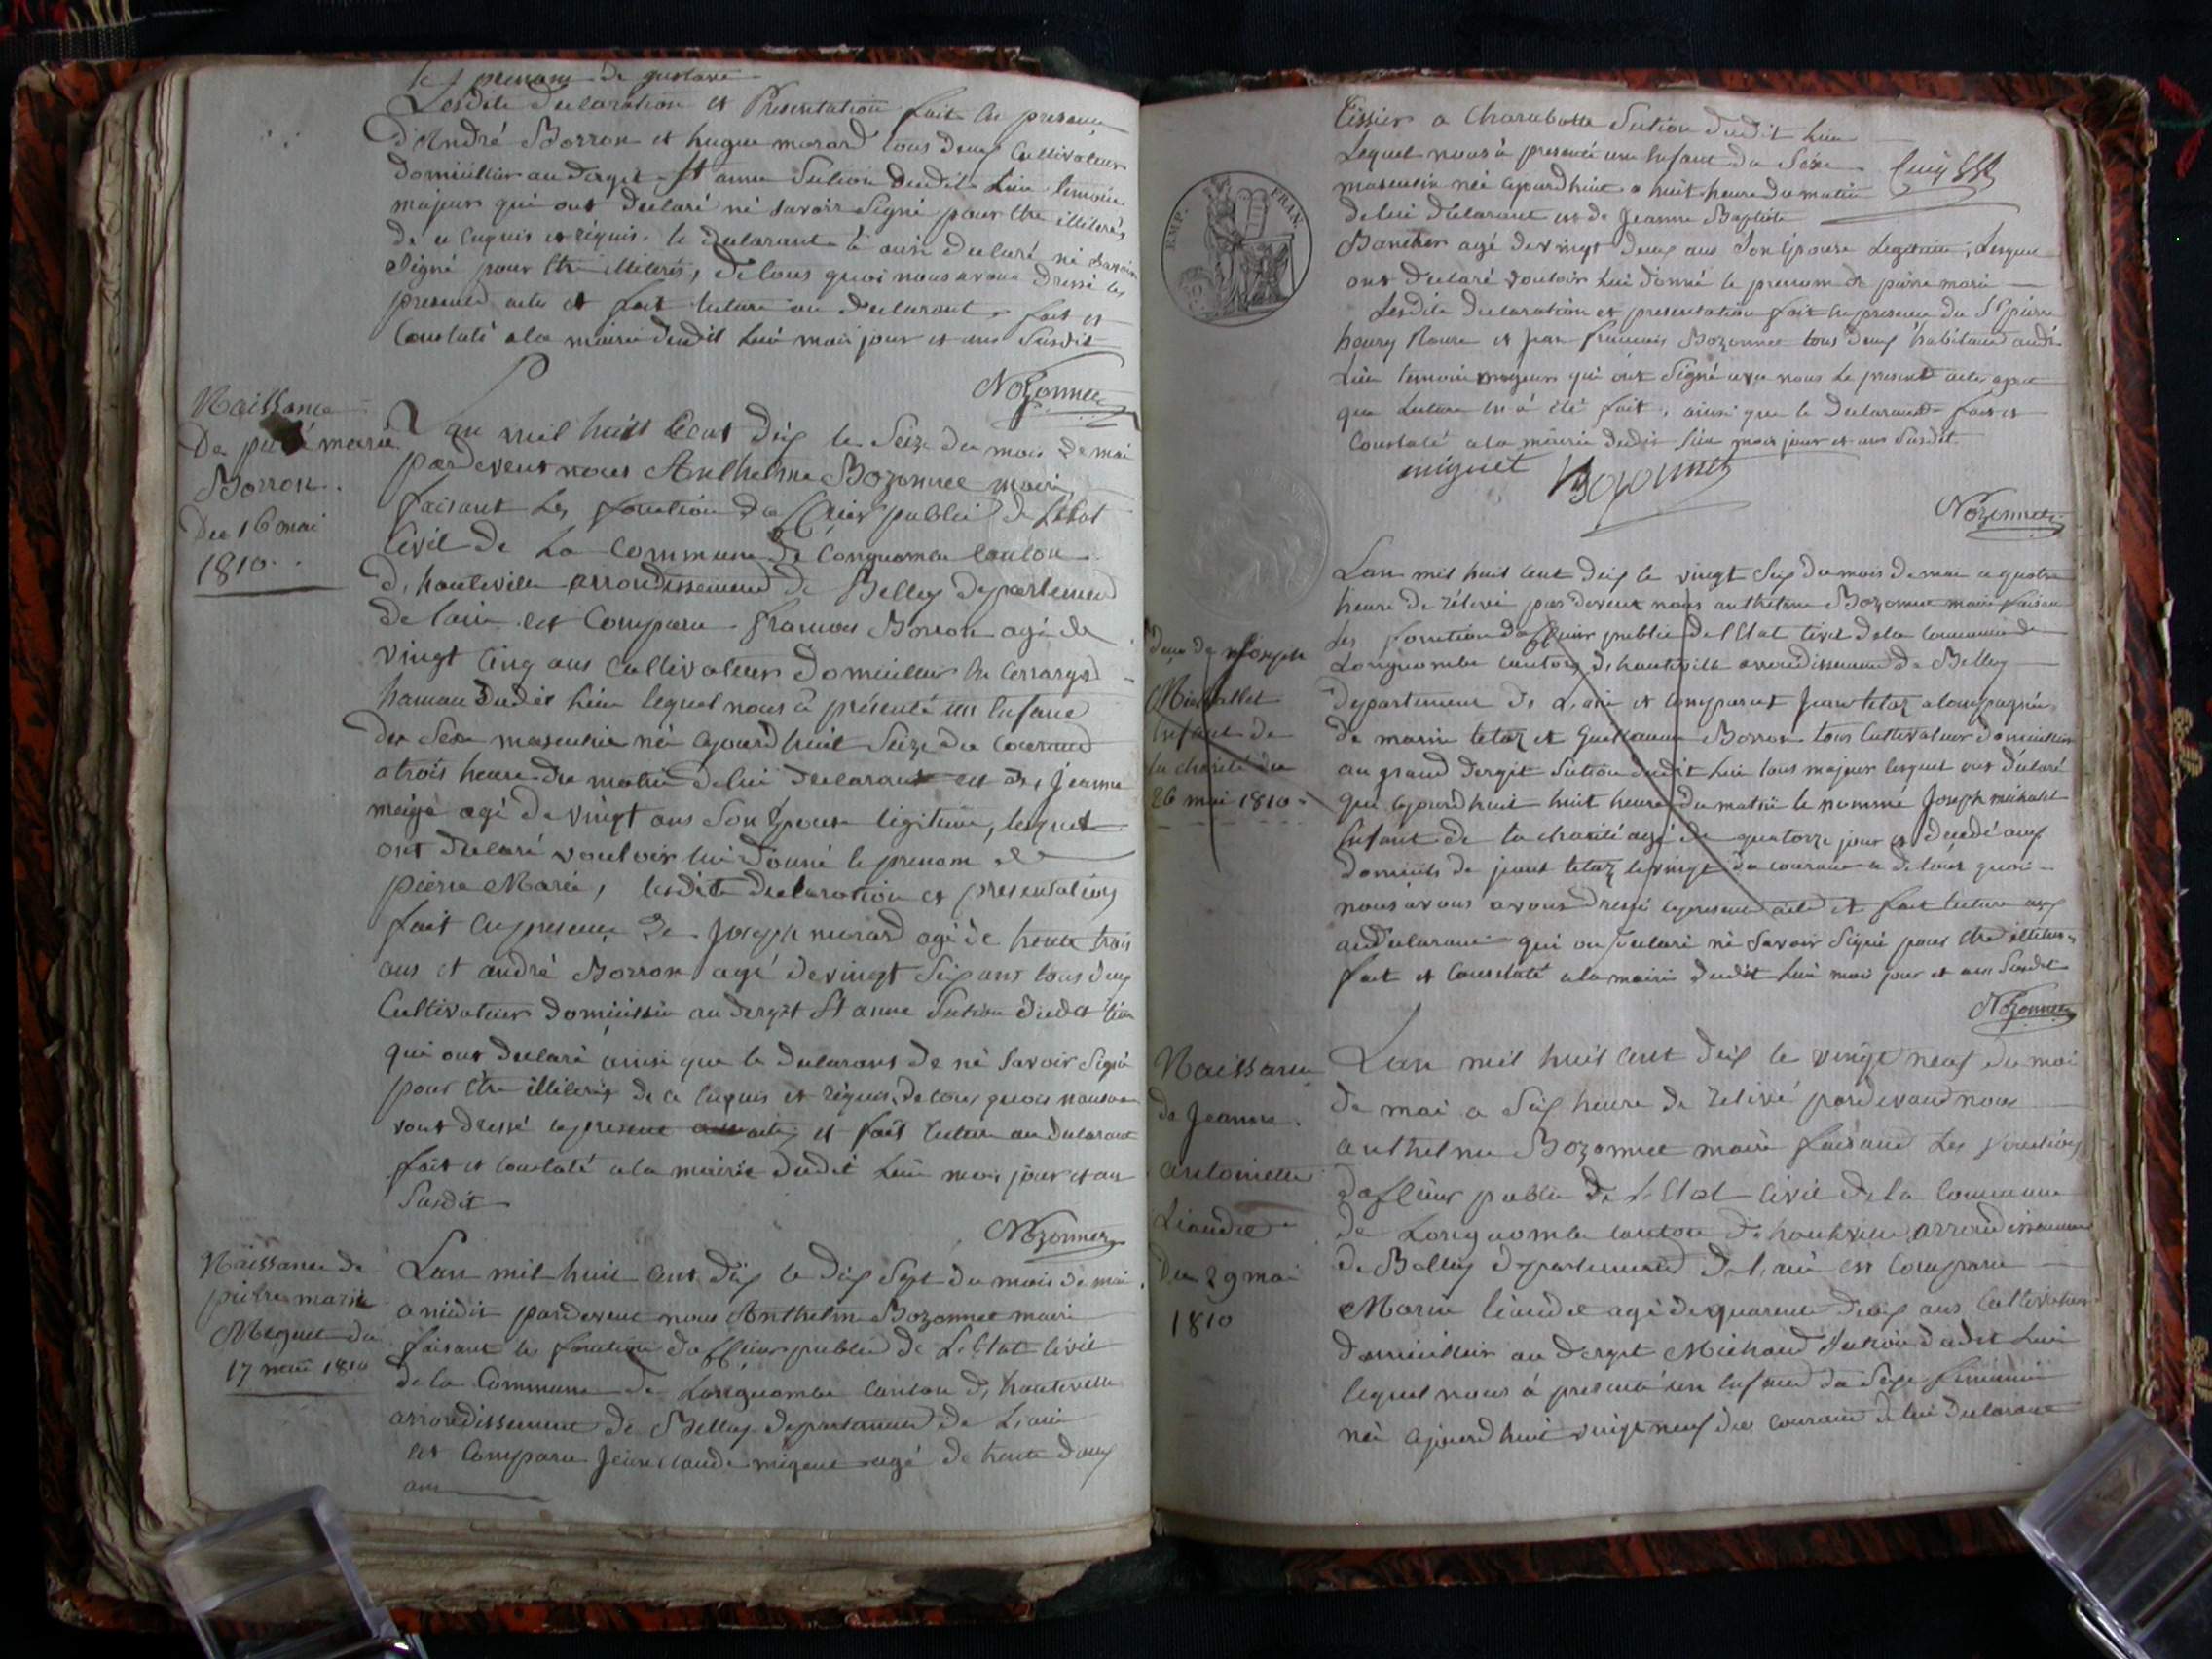 le prenom de gustave
Lesdite declaration et Presentation fait en presence
d'André Borron et hugue morard tous deux Cultivateur
domicillier au dergit St anne Section dudit Lieu temoin
majeur qui ont declaré né savoir Signé pour etre illiterés
de ce enquis et requis. le declarant a ausi declaré né savoir
Signé pour etre illiterés, de tous quoi nous avons dressé les
present acte et fait lecture au declarant, fait et
Constaté a la mairie dudit Lieu mois jour et an Susdit
Bozonnet
Naissance
De pierre marie
Borron.
Du 16 mai
1810.
Lan mil huit Cent dix le Seize du mois de mai
pardevent nous Anthelme Bozonnet maire
faisant les fonction d'officier public de Letat
Civil de La Commune de Longuombe Canton
d'hauteville arrondissement de Belley departement
de lain est Comparu francois Borron agé de
vingt cinq ans Cultivateur domicillier
hamau dudit Lieu lequel nous à présenté un Enfant
du Sexe masculin né ajourd huit Seize du Courant
a trois heure du matin de lui declarant et de Jeanne
agé de vingt ans Son Epouse legitime, lesquel
ont declaré vouloir lui donné le prenom de
pierre Marie, lesdite declaration et presentation
fait en presence de Joseph morard agé de trente trois
ans et andré Borron agé de vingt Six ans tous deux
Cultivateur domicillier au dergit St anne Section dudit lieu
qui ont declaré ainsi que le declarant de né Savoir Signé
pour être illiterés de ce enquis et requis, de tous quoi nous a
vons dressé le present acte et fait lecture au declarant
fait et Constaté a la mairie dudit Lieu mois jour et an
Susdit
Bozonnet
Naissance de
pierre marie
Miguet du
17 mai 1810
Lan mil huit Cent dix le dix Sept du mois de mai
a midit pardevent nous Anthelme Bozonnet maire
faisant les fonction d'officier public de Letat Civil
de la Commune de Longuombe Canton d'hauteville
arrondissement de Belley departement de Lain
est Comparu Jean claude miguet agé de trente deux
ans
EMP. FRAN.
Tissier a Charabotte Section dudit Lieu
Lequel nous à presenté un Enfant du Sexe
masculin né ajourdhuit a huit heure du matin
de lui declarant et de Jeanne Baptiste
agé de vingt deux ans Son Epouse Legitime, Lesquel
ont declaré vouloir lui donné le prenom de pierre marie
Lesdite declaration et presentation fait en presence du Sr pierre
henry et Jean francois Bozonnet tous deux habitant audit
Lieu temoin majeur qui ont Signé avec nous Le present acte apret
que Lecture en à été fait, ainsi que le declarant fait et
Constaté a la mairie dudit Lieu mois jour et an Susdit
miguet Bozonnet
Bozonnet
Joseph
Michallet
Enfant de
la charité du
26 mai 1810.
Lan mil huit Cent dix le vingt Six du mois de mai a quatre
heure de rélevé pardevent nous anthelme Bozonnet maire faisant
les fonction d'officier public de l'Etat Civil de la Commune de
Longuombe Canton d'hauteville arrondissement de Belley
departement de Lain et Comparut Jean tetaz acompagnié
de marin tetaz et Guillaume Borron tous Cultivateur domicillier
au grand dergit Section dudit Lieu tous majeur lesquel ont déclaré
que ajourdhuit huit heure du matin le nommé Joseph michalet
Enfant de la charité agé de quatorze jour est decedé aux
domicile de jean tetaz le vingt du courant de tous quoi
nous avons avons dressé le present acte et fait lecture aux
au declarant qui on declaré né Savoir Signé pour etre illiterés
fait et Constaté a la mairie dudit Lieu mois jour et an Susdit
Bozonnet
Naissance
de Jeanne
antoinette
Liaudet
Du 29 mai
1810
Lan mil huit Cent dix le vingt neuf du moi
de mai a Six heure de relevé pardevand nous
anthelme Bozonnet maire faisand les fonction
d'officier public de L'Etat Civil de la Commune
de Longuombe Canton d'hauteville arrondissement
de Belley departement de Lain est Comparu
Marin Liaudet agé de quarente deux ans Cultivateur
domicillier au dergit Michaud Section dudit Lieu
lequel nous à presenté un Enfant du Sexe feminin
né ajourd huit vingt neuf du Courant de lui declarant